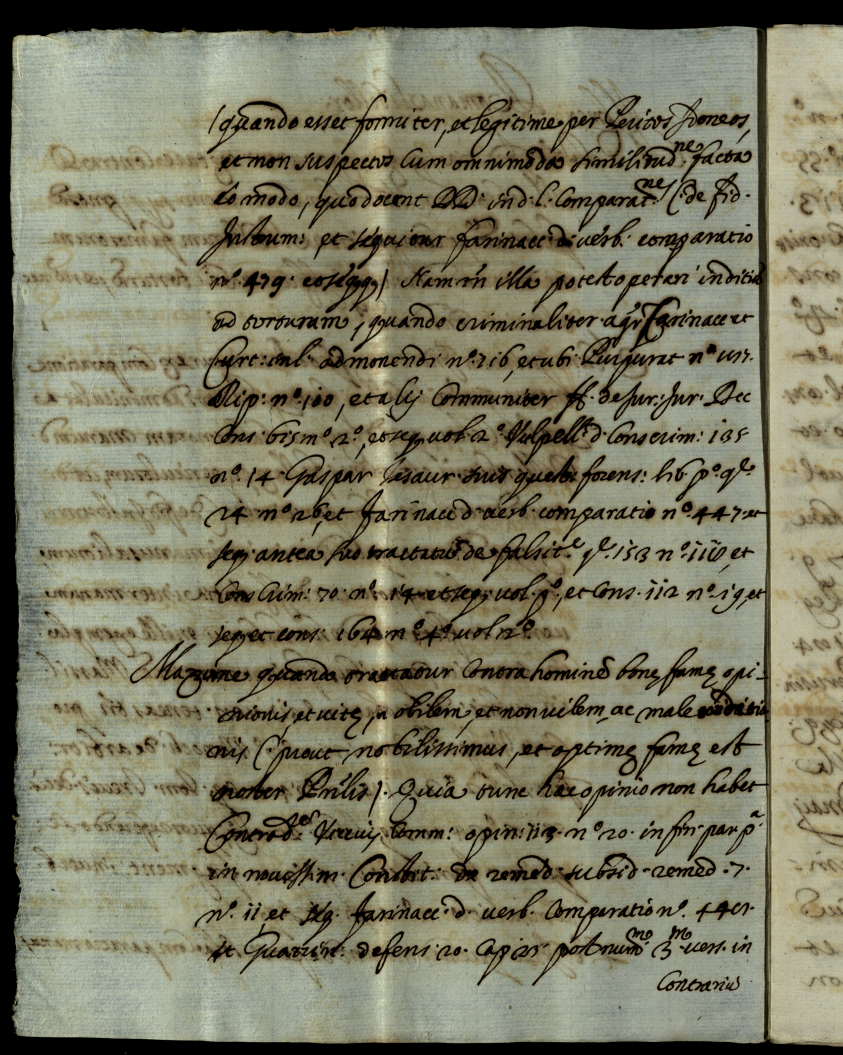 (quando esset formiter, et legitime per Peritos Idoneos,
et non suspectos Cum omnimoda similitud.ne facta
eo modo, quo docent DD. in d. l. Comparat.ne C. de fid.
Instrum: et sequitur farinacc. d. verb. comparatio
n.º 479. et seqq) Nam illa potest operari inditiũ
ad torturam, quando criminaliter agr Carinacc et
admonendi n.º 216, et ubi Purpurat n.º
Rip: n.º 100, et alij Communiter ff. de Jur: Jur. Dec
Cons. 615 n.º 2º, et seq. vol 2.º Vulpell. d. Cons crim: 135
n.º 14 Gaspar Tesaur. suis quest: forens: lib p.º q.º
24 n.º 26, et farinacc. d. verb. comparatio n.º 447. et
seq. antea suo tractatũ de falsit.e q.º 153 n.º 118, et
Cons Crim: 70. n.º 14. et seq. vol. p.º, et Cons. 112 n.º 19, et
seq. et cons. 164 n.º 4.º vol 2.º
Maxime quando tractatur Contra hominẽ bonę famę opi-
nionis, et vitę, nobilem, et non vilem, ac male conditio
nis (prout nobilissimus, et optimę famę est
noster Prñlis). Quia tunc hac opinio non habet
Comm: opin: 113. n.º 20. in fin: par p.ª
in noviss.m Conart: de remed. subsid. remed. 7.
n.º 11, et seq. Farinacc. d. verb. Comparatio n.º
et Guazzin: defens. 20. Cap 25. post num.mo 3.mo vers. in
Contrariũ